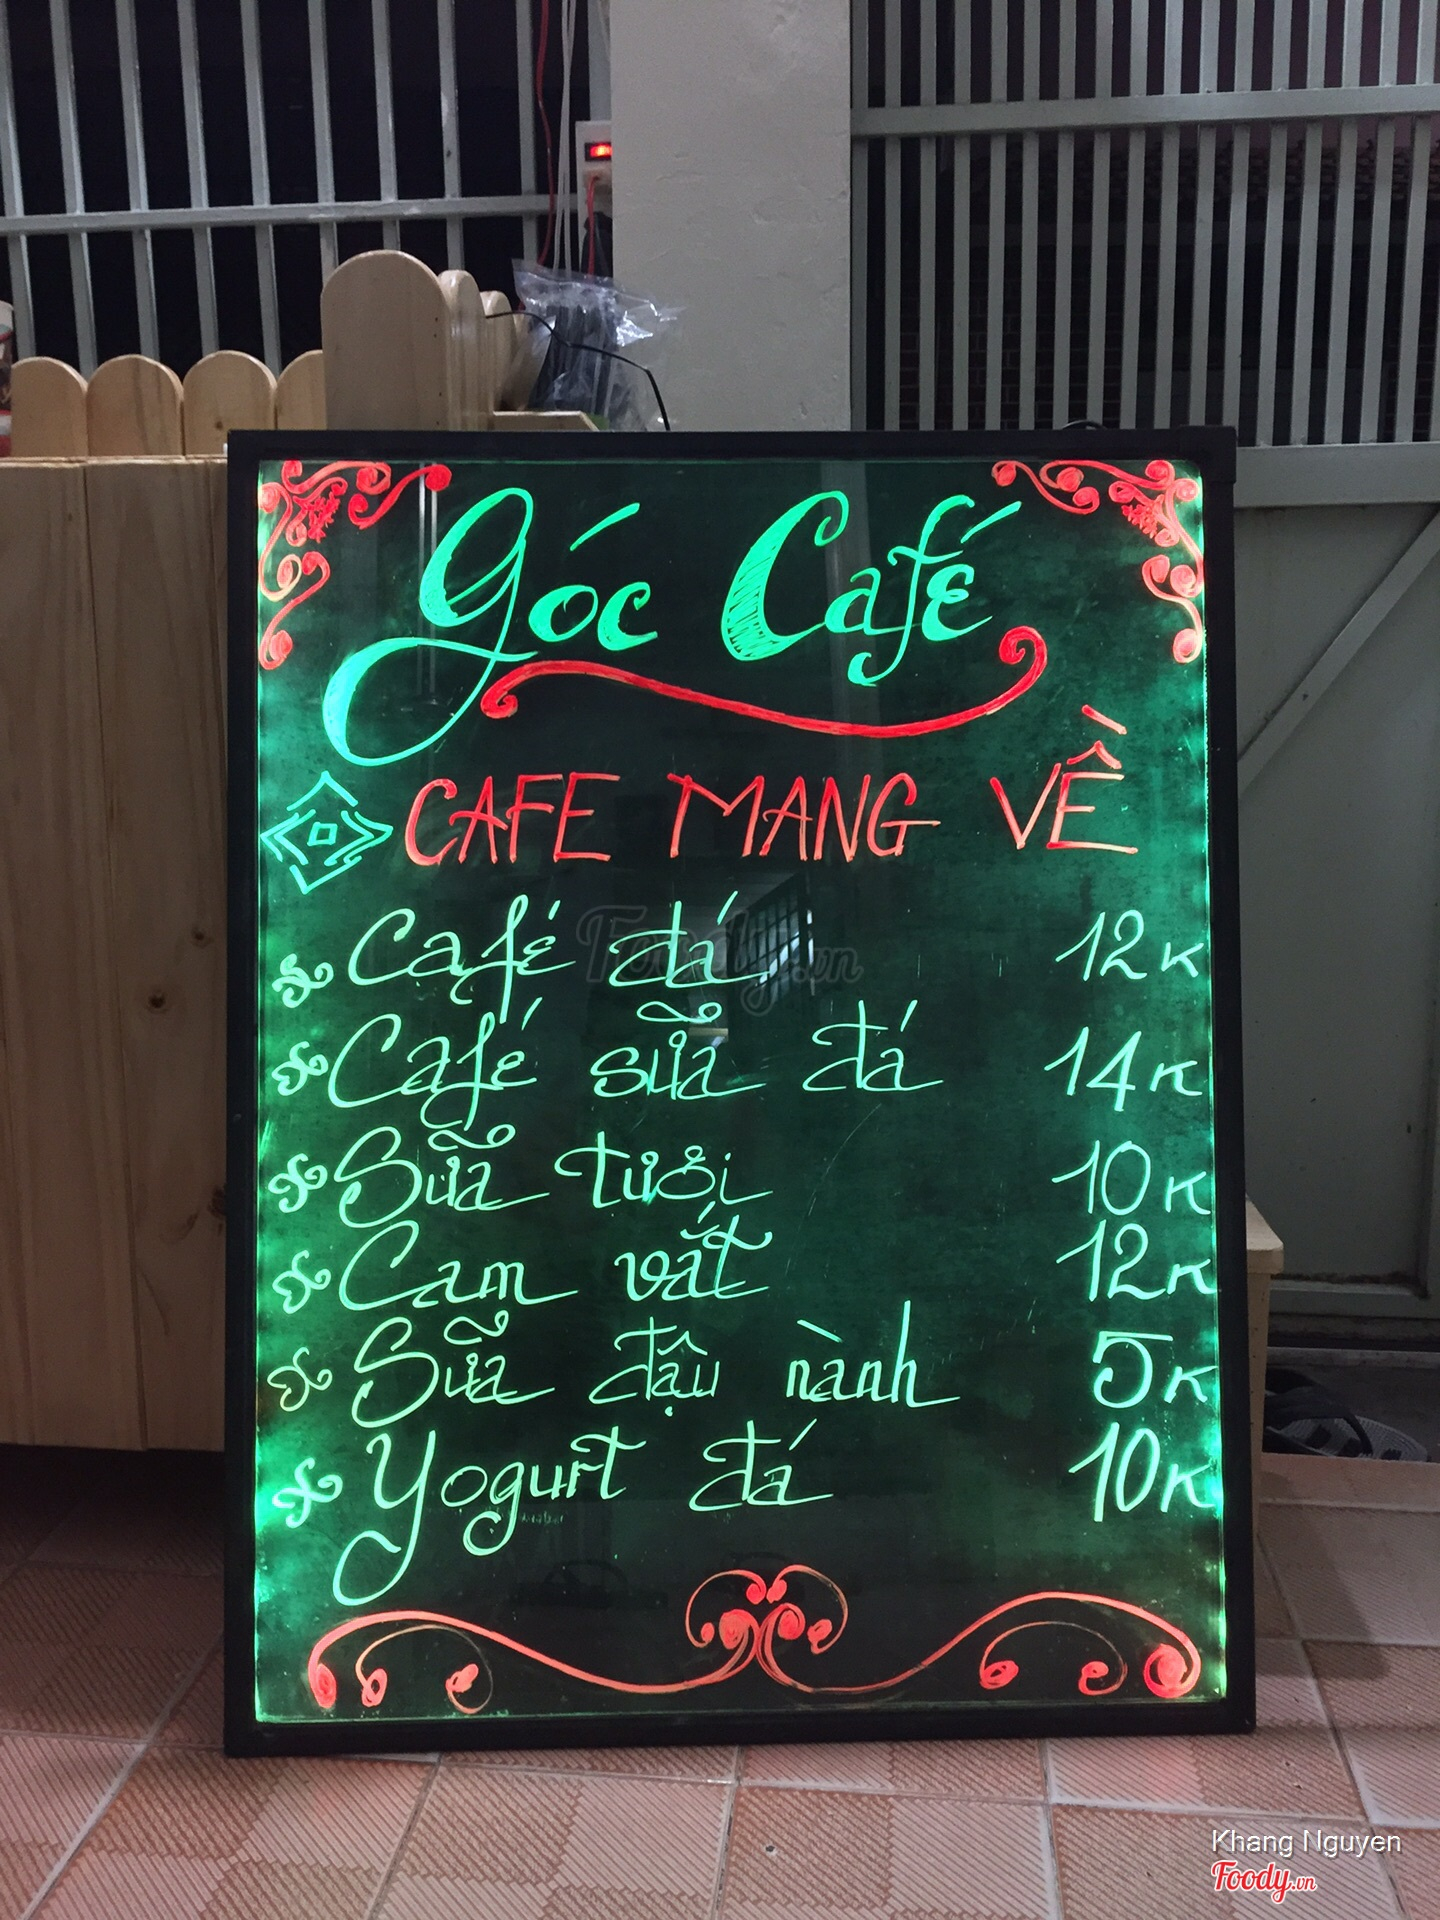 Góc Café
CAFE MANG VỀ
Café đá 12K
Café sữa đá 14K
Sữa tươi 10K
Cam vắt 12K
Sữa đậu nành 5K
Yogurt đá 10K
Foody.vn
Khang Nguyen
Foody.vn